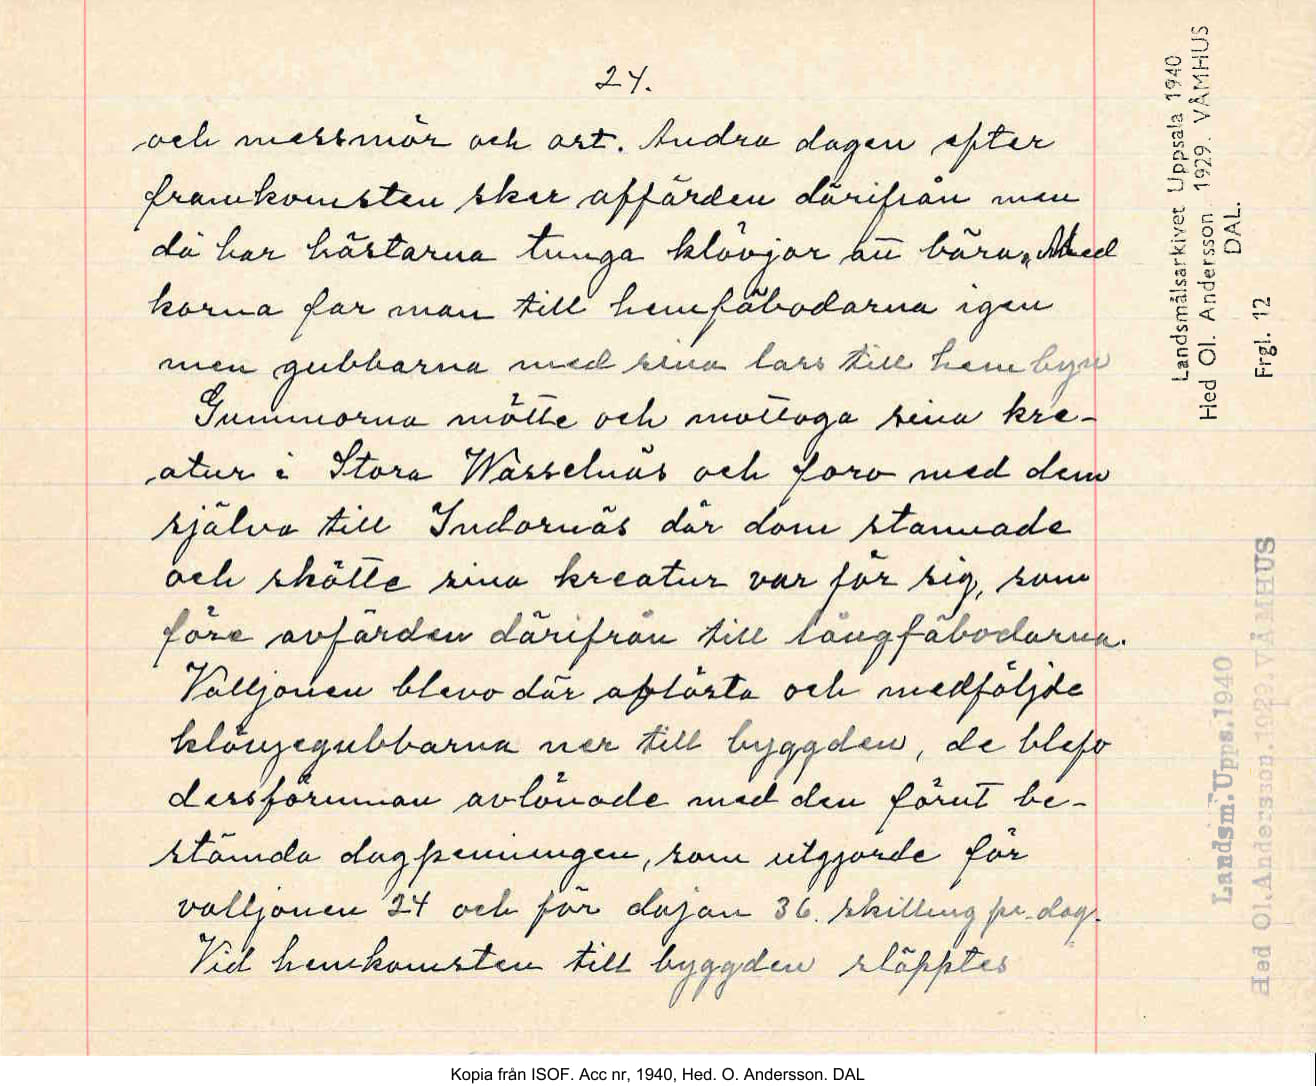 24.
och messmör och ost. Andra dagen efter
framkomsten sker affärden därifrån men
då har hästarna tunga klövjor att bära, Med
korna far man till hemfäbodarna igen
men gubbarna med sina lass till hembyn
Gummorna mötte och mottoga sina kre-
atur i Stora Wasselnäs och foro med dem
själva till Indornäs där dom stannade
och skötte sina kreatur var för sig, som
före avfärden därifrån till långfäbodarna.
Valljonen blevo där aflösta och medföljde
klövjegubbarna ner till byggden, de blefo
dessförinnan avlönade med den förut be-
stämda dagpenningen, som utgjorde för
valljonen 24 och för dajan 36. skilling pr. dag.
Vid hemkomsten till byggden släpptes
Landsmålsarkivet Uppsala 1940
Hed Ol. Andersson. 1929. VÅMHUS
DAL.
Frgl. 12
Landsm. Upps. 1940
Hed Ol. Andersson. 1929. VÅMHUS
Kopia från ISOF. Acc nr, 1940, Hed. O. Andersson. DAL